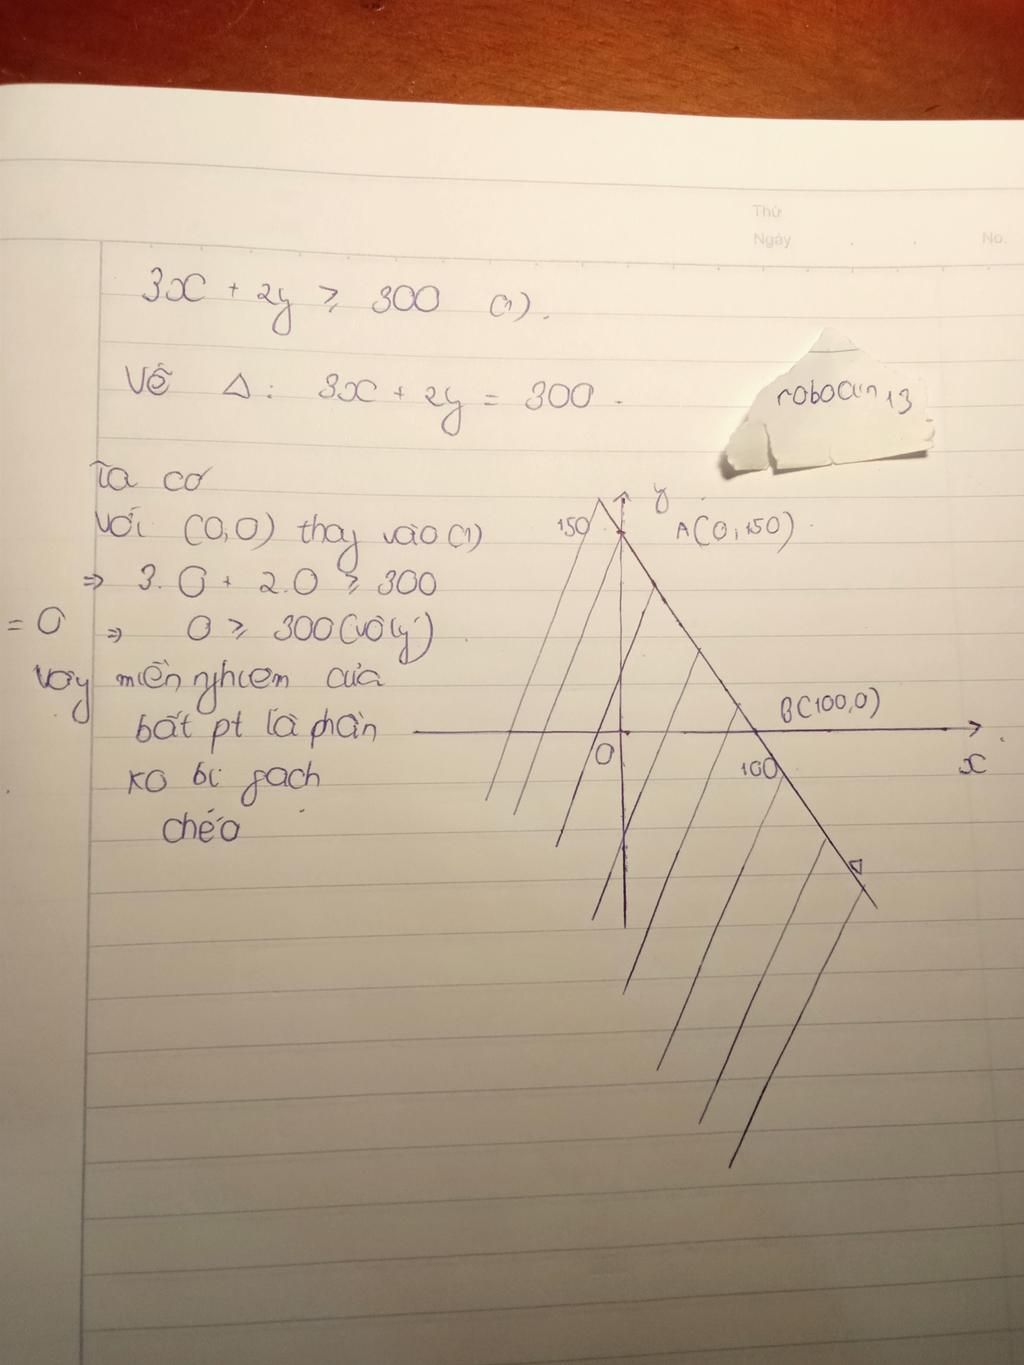 Thứ
Ngày
No.
3x + 2y ≥ 300 (1).
Vẽ Δ: 3x + 2y = 300.
robocin 13
Ta có
Với (0,0) thay vào (1)
⇒ 3.0 + 2.0 ≥ 300
= 0 ⇒ 0 ≥ 300 (vô lý)
Vậy miền nghiệm của
bất pt là phần
ko bị gạch
chéo
y
150
A(0,150)
B(100,0)
O
100
x
Δ